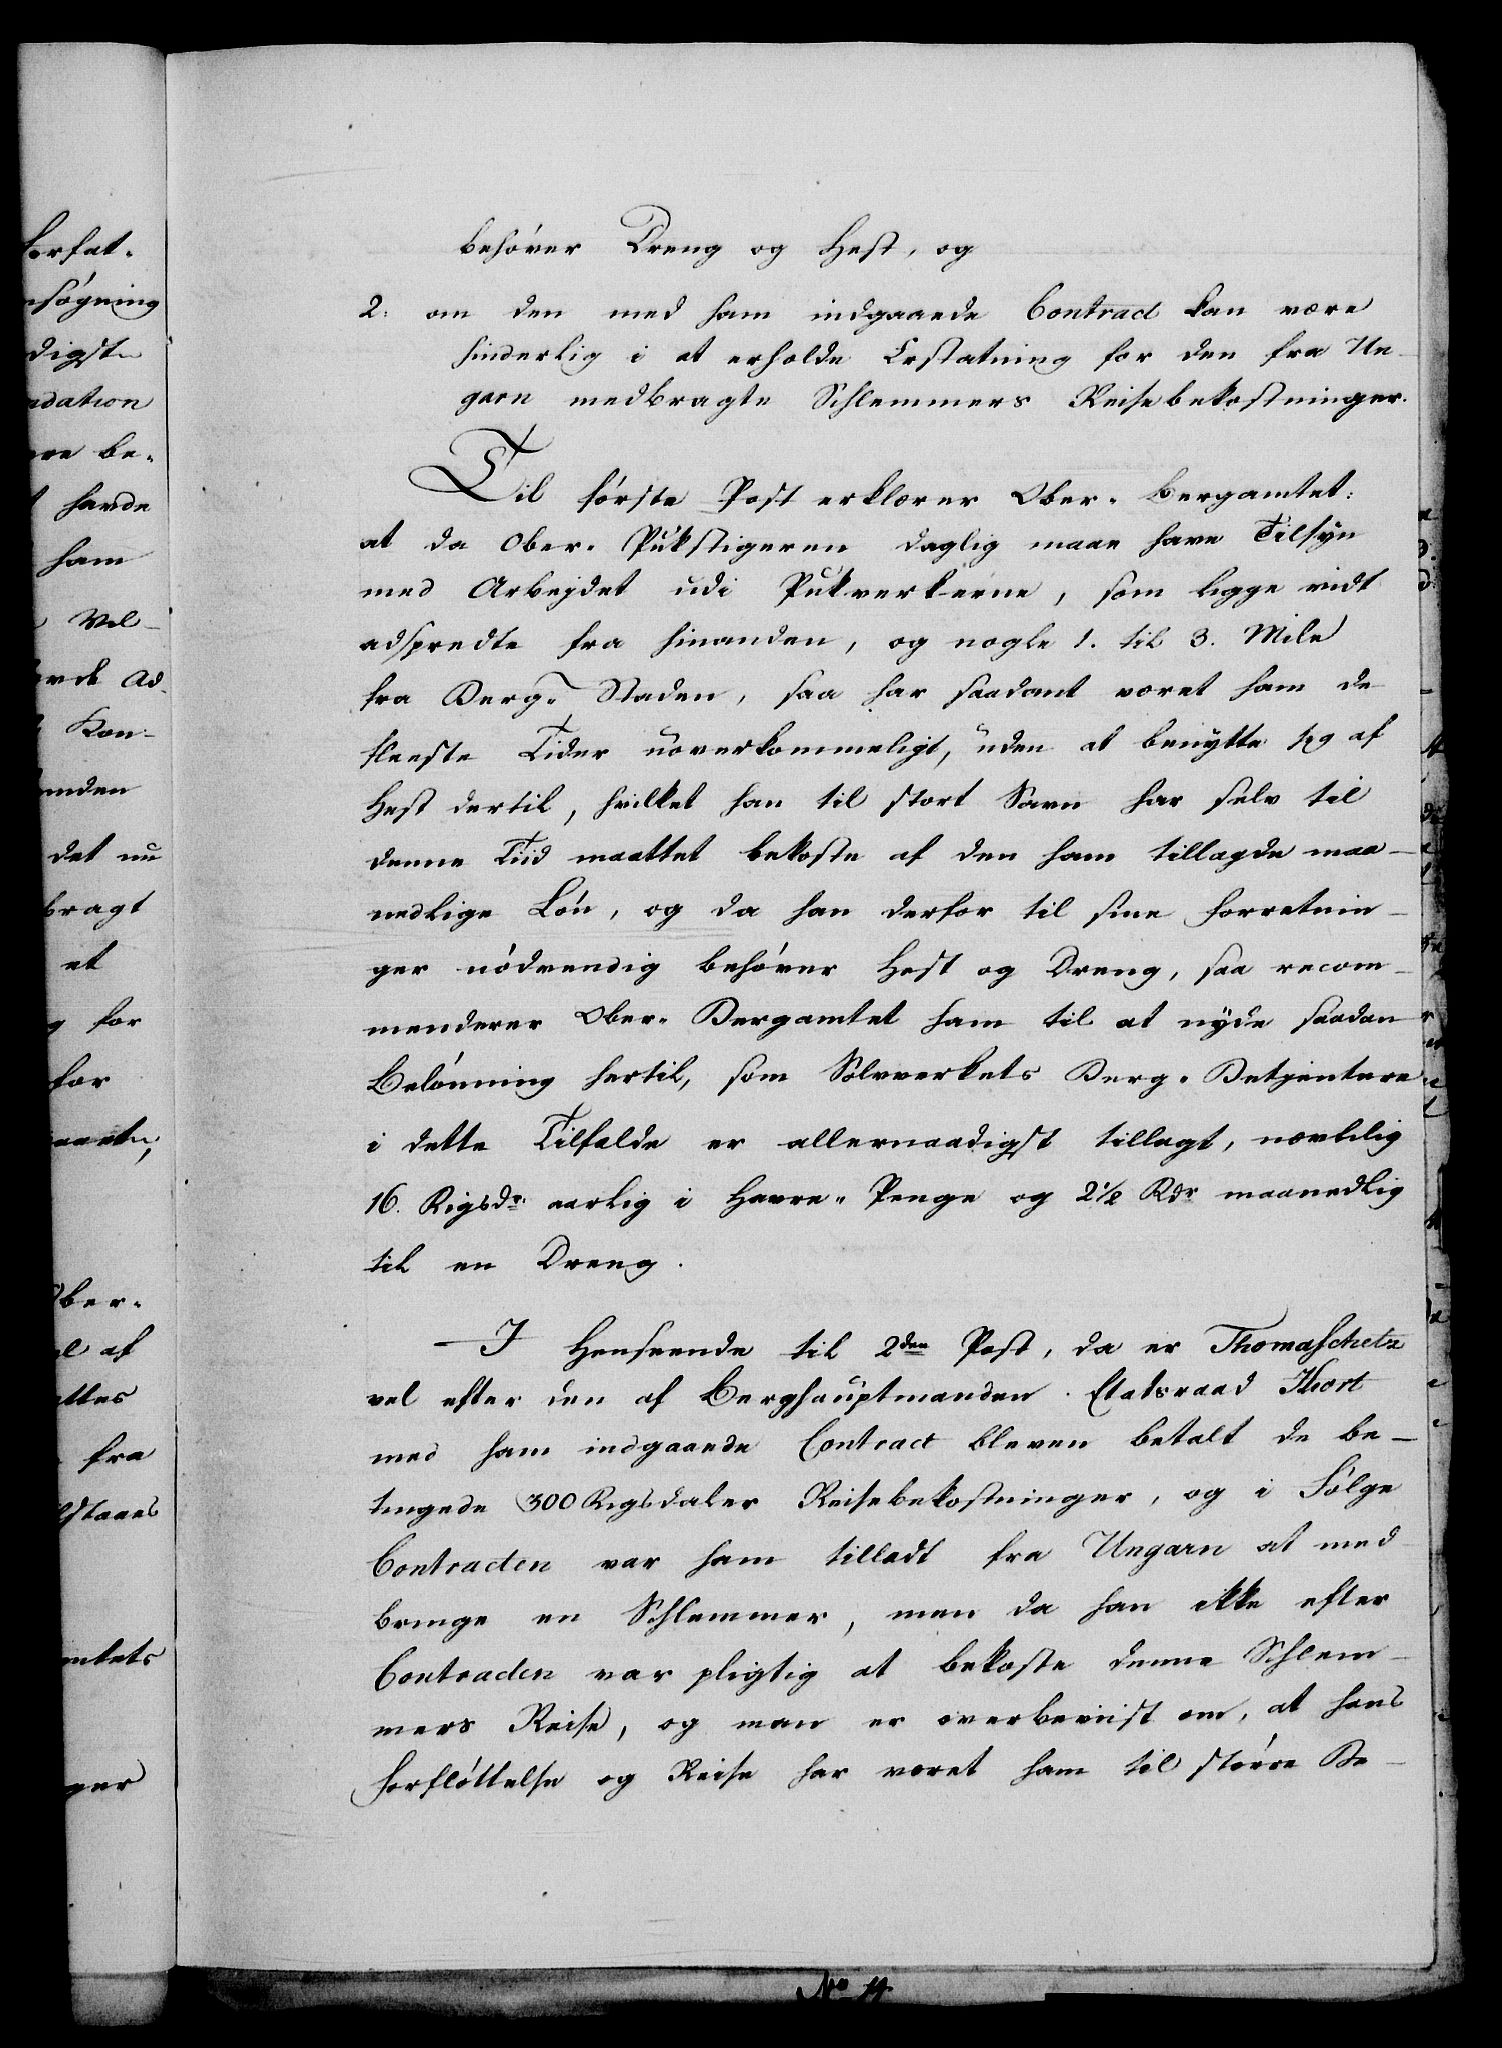 behöver Dreng og Hest, og
2. om den med ham indgaaede Contract kan være
hinderlig i at erholde Erstatning for den fra Un-
garn medbragte Schlemmers Reisebekostninger.
Til förste Post erklærer Ober-Bergamtet:
at da Ober-Pukstigeren daglig maae have Tilsyn
med Arbejdet udi Pukverkerne, som ligge vidt
adspredte fra hinanden, og nogle 1. til 3. Mile
fra Berg-Staden, saa har saadant været ham de
fleeste Tider uoverkommeligt, uden at benytte sig af
Hest dertil, hvilket han til stort Savn har selv til
denne Tiid maattet bekoste af den ham tillagde maa-
nedlige Lön, og da han derfor til sine Forretnin-
ger nödvendig behöver Hest og Dreng, saa recom-
menderer Ober-Bergamtet ham til at nyde saadan
Belönning hertil, som Sölvverkets Berg-Betjentere
i dette Tilfælde er allernaadigst tillagt, nævnlig
16. Rigsdr aarlig i Havre-Penge og 2½ Rdr maanedlig
til en Dreng.
I Henseende til 2den Post, da er Thomaschetz
vel efter den af Berghauptmanden Etatsraad Hiort
med ham indgaaede Contract bleven betalt de be-
tingede 300 Rigsdaler Reisebekostninger, og i Fölge
Contracten var ham tilladt fra Ungarn at med
bringe en Schlemmer, men da han ikke efter
Contracten var pligtig at bekoste denne Schlem-
mers Reise, og man er overbeviist om, at hans
Forflöttelse og Reise har været ham til större Be-
No 14